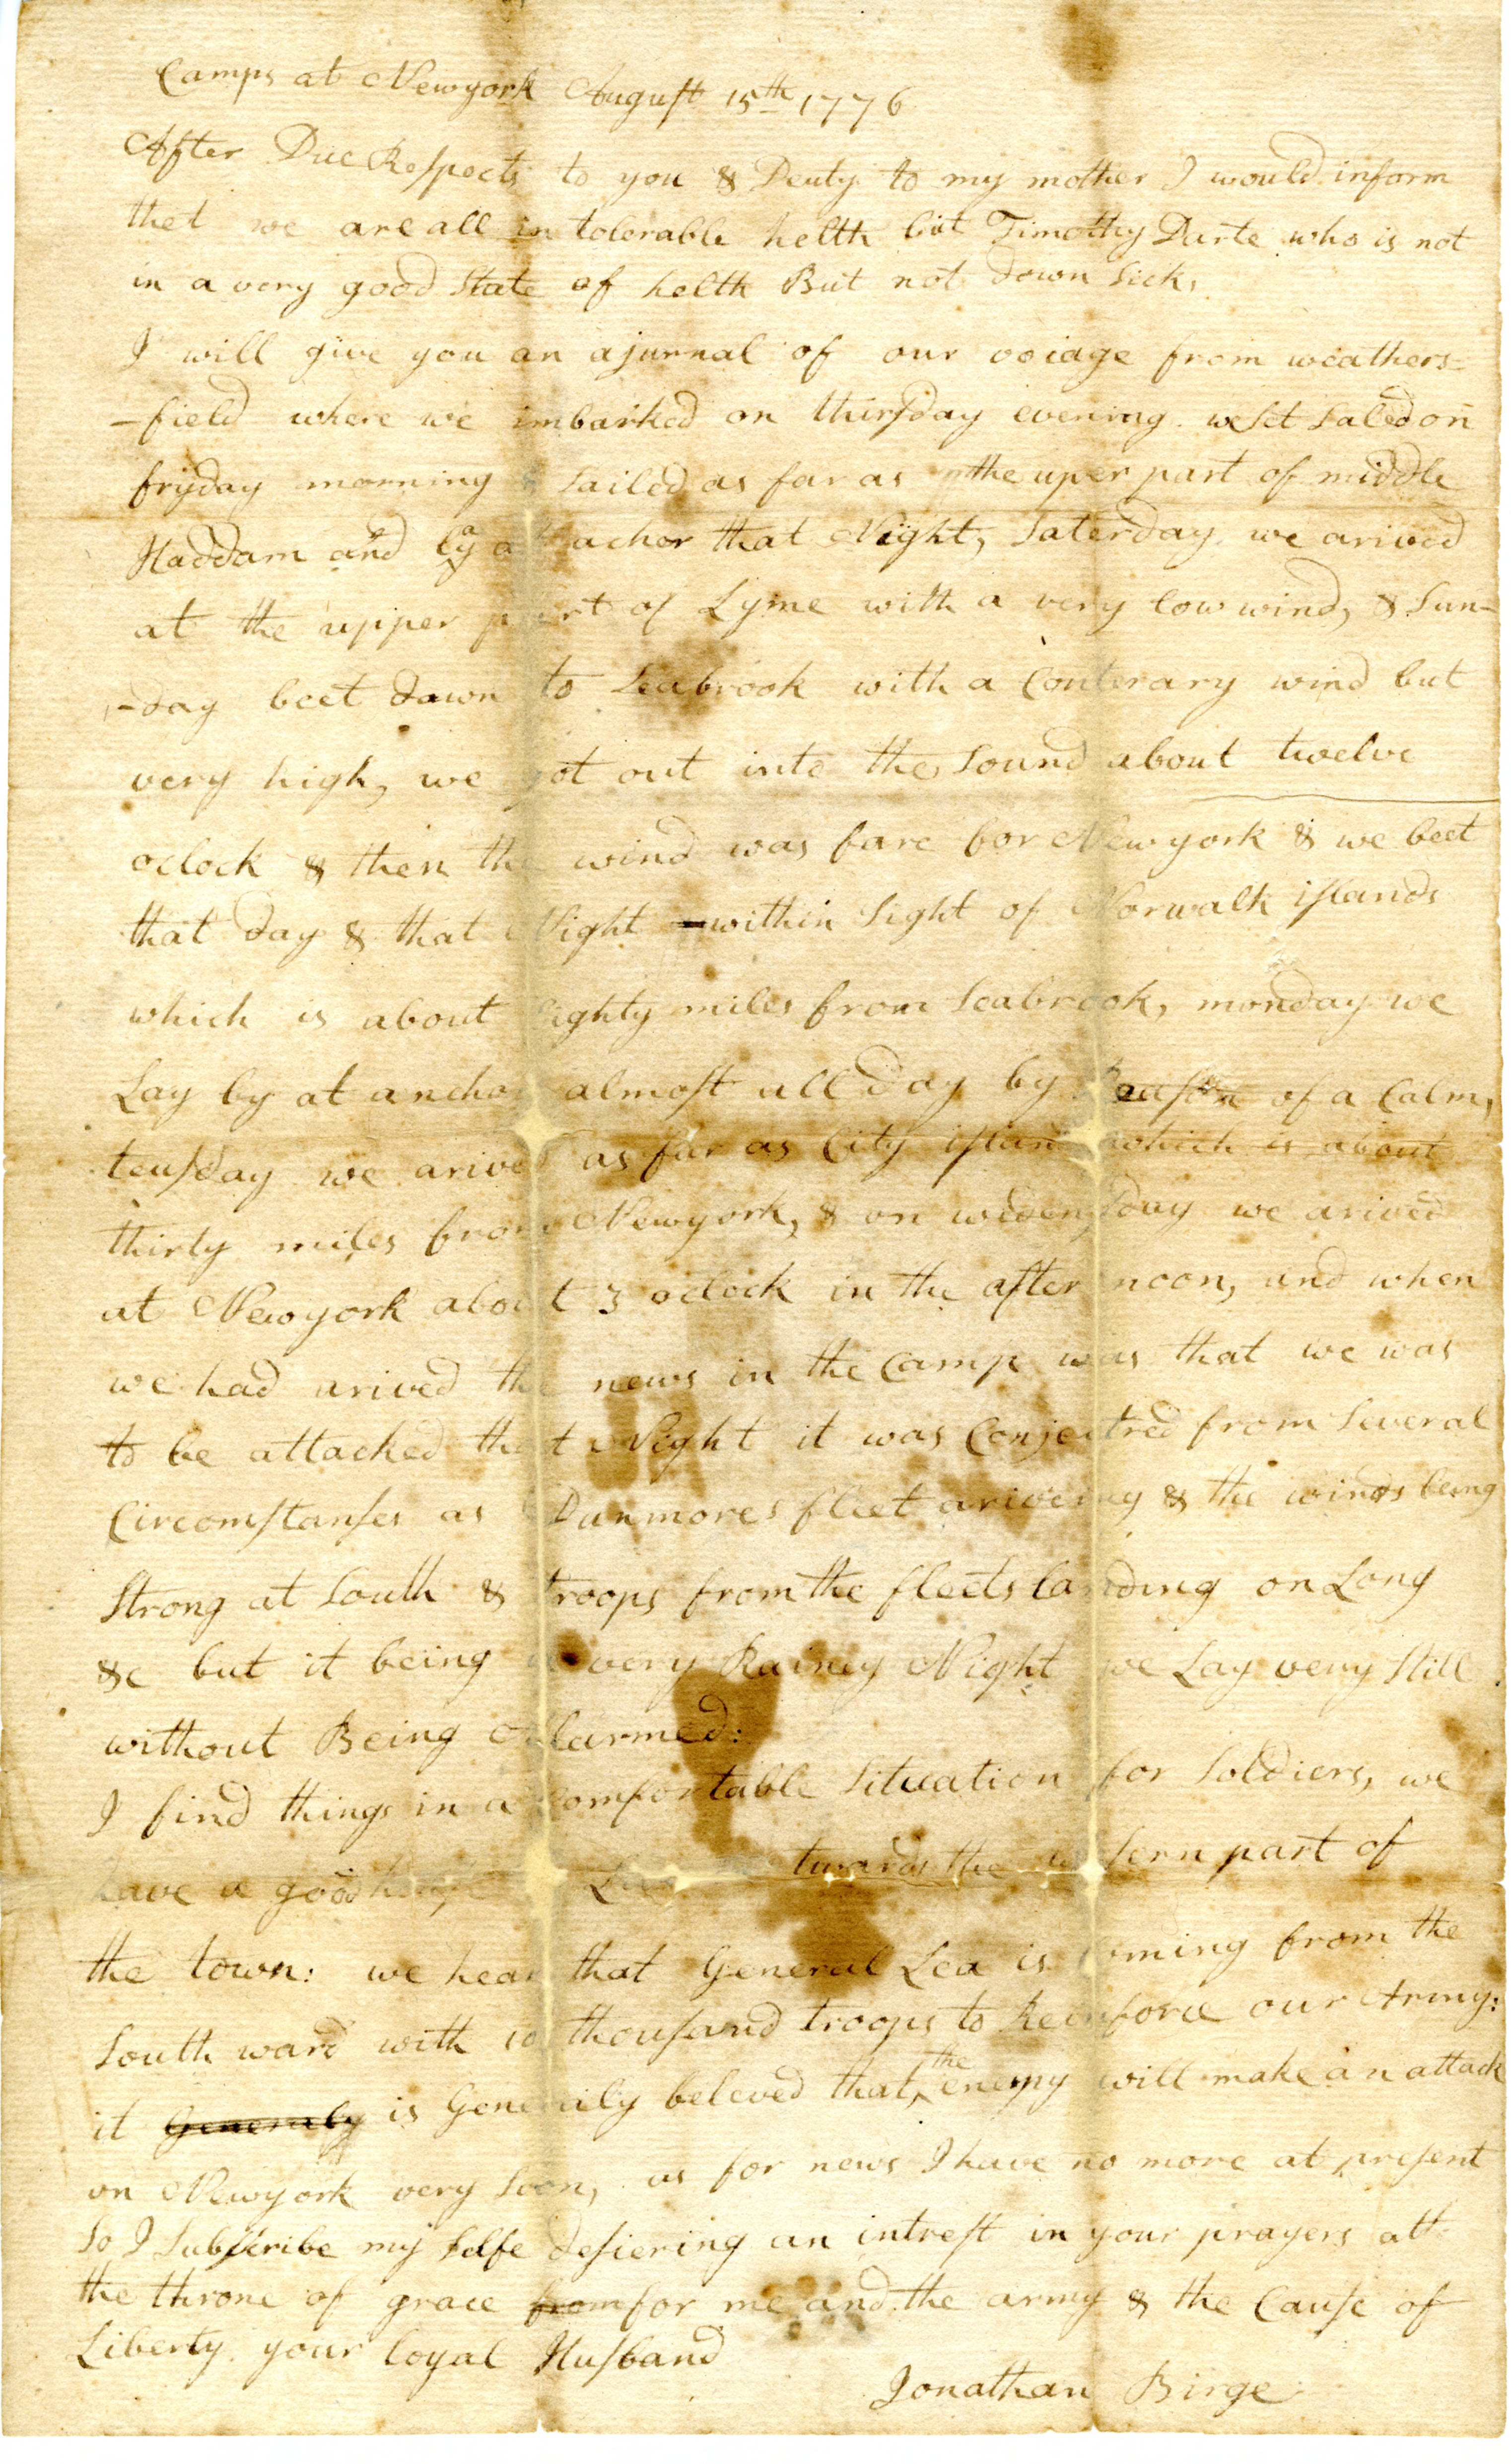 Camps at Newyork August 15th 1776
After Due Respects to you & Deuty to my mother I would inform
thet we are all in tolerable helth but Timothy Darte who is not
in a very good State of helth But not down Sick,
I will give you an ajurnal of our voiage from weathers=
-field where we imbarked on thursday evening. we Set Saled on
fryday morning & Sailed as far as the uper part of middle
Haddam and lay at achor that Night, Saterday. we arived
at the upper part of Lyme with a very low wind, & Sun-
-day beet down to Seabrook with a Conterary wind but
very high, we got out into the Sound about twelve
oclock & then the wind was fare for Newyork & we beet
that day & that Night within Sight of Norwalk islands
which is about Eighty miles from Seabrook, monday we
Lay by at anchor almost all day by Reason of a Calm,
teusday we arived as far as City island which is about
thirty miles from Newyork, & on wedensday we arived
at Newyork about 3 oclock in the after noon, and when
we had arived the news in the Camp was that we was
to be attacked that Night it was Conjectred from Several
Circomstanses as Dunmores fleet ariveing & the winds being
Strong at South & troops from the fleets landing on Long
&c but it being a very Rainey Night we Lay very Still
without Being Alarmed:
I find things in a comfortable Situation for Soldiers, we
have a good house twards the western part of
the town: we hear that General Lea is coming from the
South ward with 10 thousand troops to Reinforce our Army:
it Generaly is Generaily beleved that the enemy will make an attack
on Newyork very Soon, as for news I have no more at present
So I Subscribe my Selfe desiering an intrest in your prayers att
the throne of grace from for me and the army & the Cause of
Liberty. your loyal Husband
Jonathan Birge